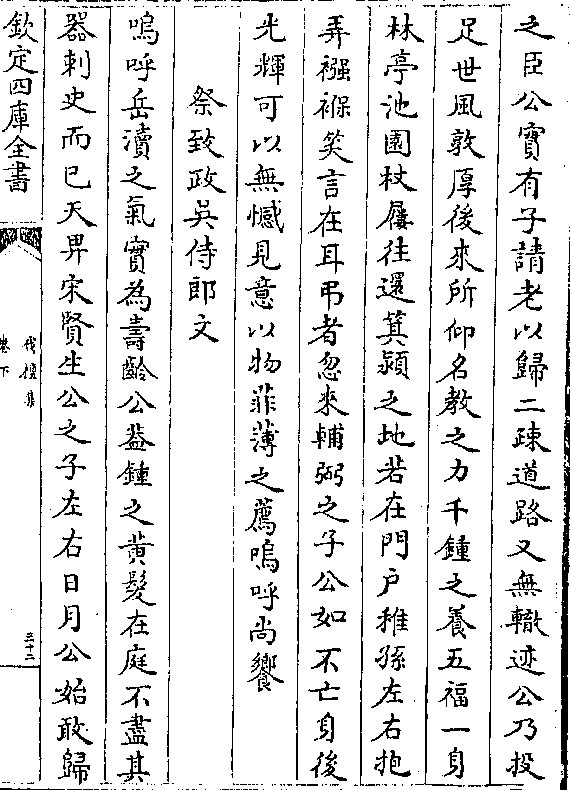 之臣公實有子請老以歸二疎道路又無轍迹公乃投
足世風敦厚後來所仰名教之力千鍾之養五福一身
林亭池園杖屨往還箕潁之地若在門戶稚孫左右抱
弄襁褓笑言在耳弔者忽來輔弼之子公如不亡身後
光輝可以無憾見意以物菲薄之薦嗚呼尚饗
祭致政吳侍郎文
嗚呼岳瀆之氣實為壽齡公葢鍾之黄髮在庭不盡其
器刺史而已天畀宋賢生公之子左右日月公始敢歸
欽定四庫全書
伐檀集
卷下
三十二